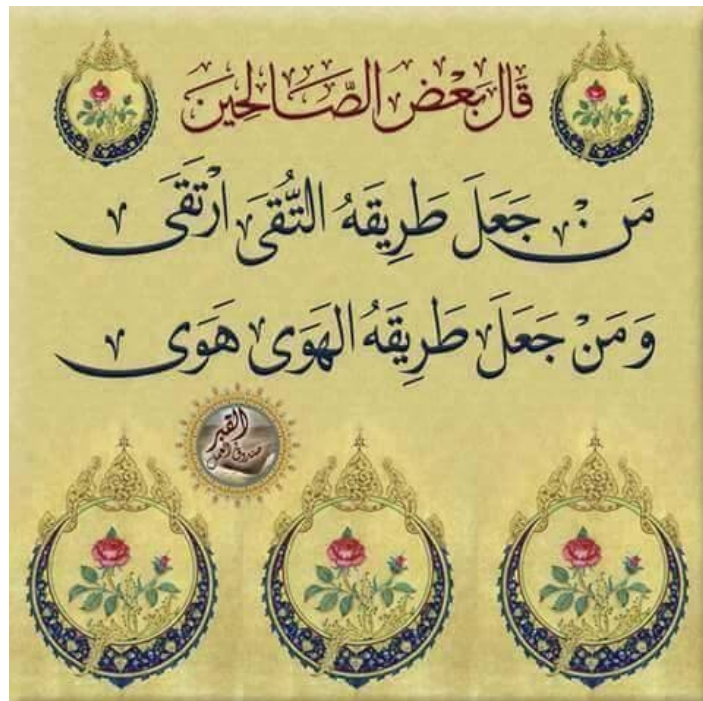 قَالَ بَعْضُ الصَّالِحِينَ
مَنْ جَعَلَ طَرِيقَهُ التُّقَى ارْتَقَى
وَمَنْ جَعَلَ طَرِيقَهُ الهَوَى هَوَى
القبر
صندوق العمل